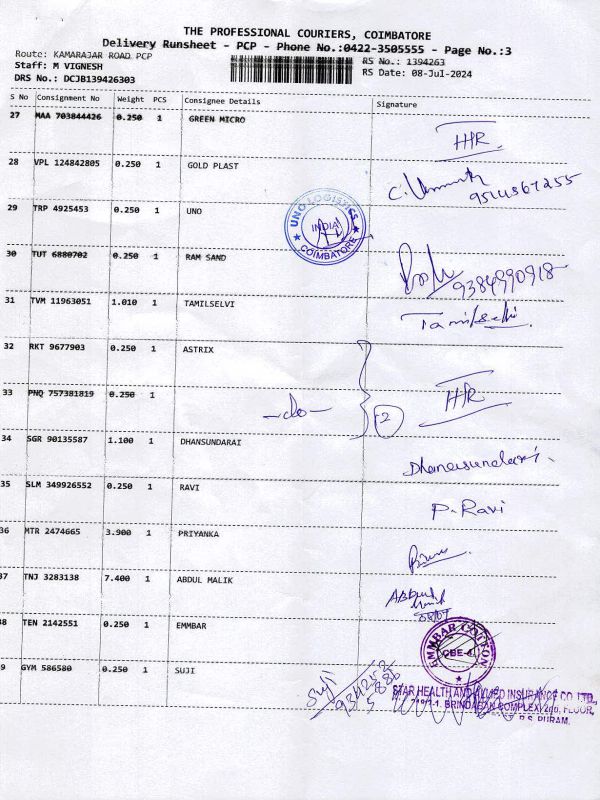 THE PROFESSIONAL COURIERS, COIMBATORE
Delivery Runsheet - PCP - Phone No.:0422-3505555 - Page No.:3
Route: KAMARAJAR ROAD PCP
RS No.: 1394263
Staff: M VIGNESH
RS Date: 08-Jul-2024
DRS No.: DCJB139426303
S No Consignment No Weight PCS Consignee Details Signature
27 MAA 703844426 0.250 1 GREEN MICRO HR
28 VPL 124842805 0.250 1 GOLD PLAST
9514567255
29 TRP 4925453 0.250 1 UNO
UNO LOGISTICS
INDIA
COIMBATORE
30 TUT 6880702 0.250 1 RAM SAND
9384990918
31 TVM 11963051 1.010 1 TAMILSELVI Tamilselvi
32 RKT 9677903 0.250 1 ASTRIX
33 PNQ 757381819 0.250 1 -do- 2 HR
34 SGR 90135587 1.100 1 DHANSUNDARAI
35 SLM 349926552 0.250 1 RAVI P. Ravi
36 MTR 2474665 3.900 1 PRIYANKA
37 TNJ 3283138 7.400 1 ABDUL MALIK Abdul
38 TEN 2142551 0.250 1 EMMBAR
EMMBAR COTTON
CBE-4
39 GYM 586580 0.250 1 SUJI Suji
STAR HEALTH AND ALLIED INSURANCE CO. LTD.,
BRINDABAN COMPLEX, 2nd FLOOR,
R.S. PURAM,